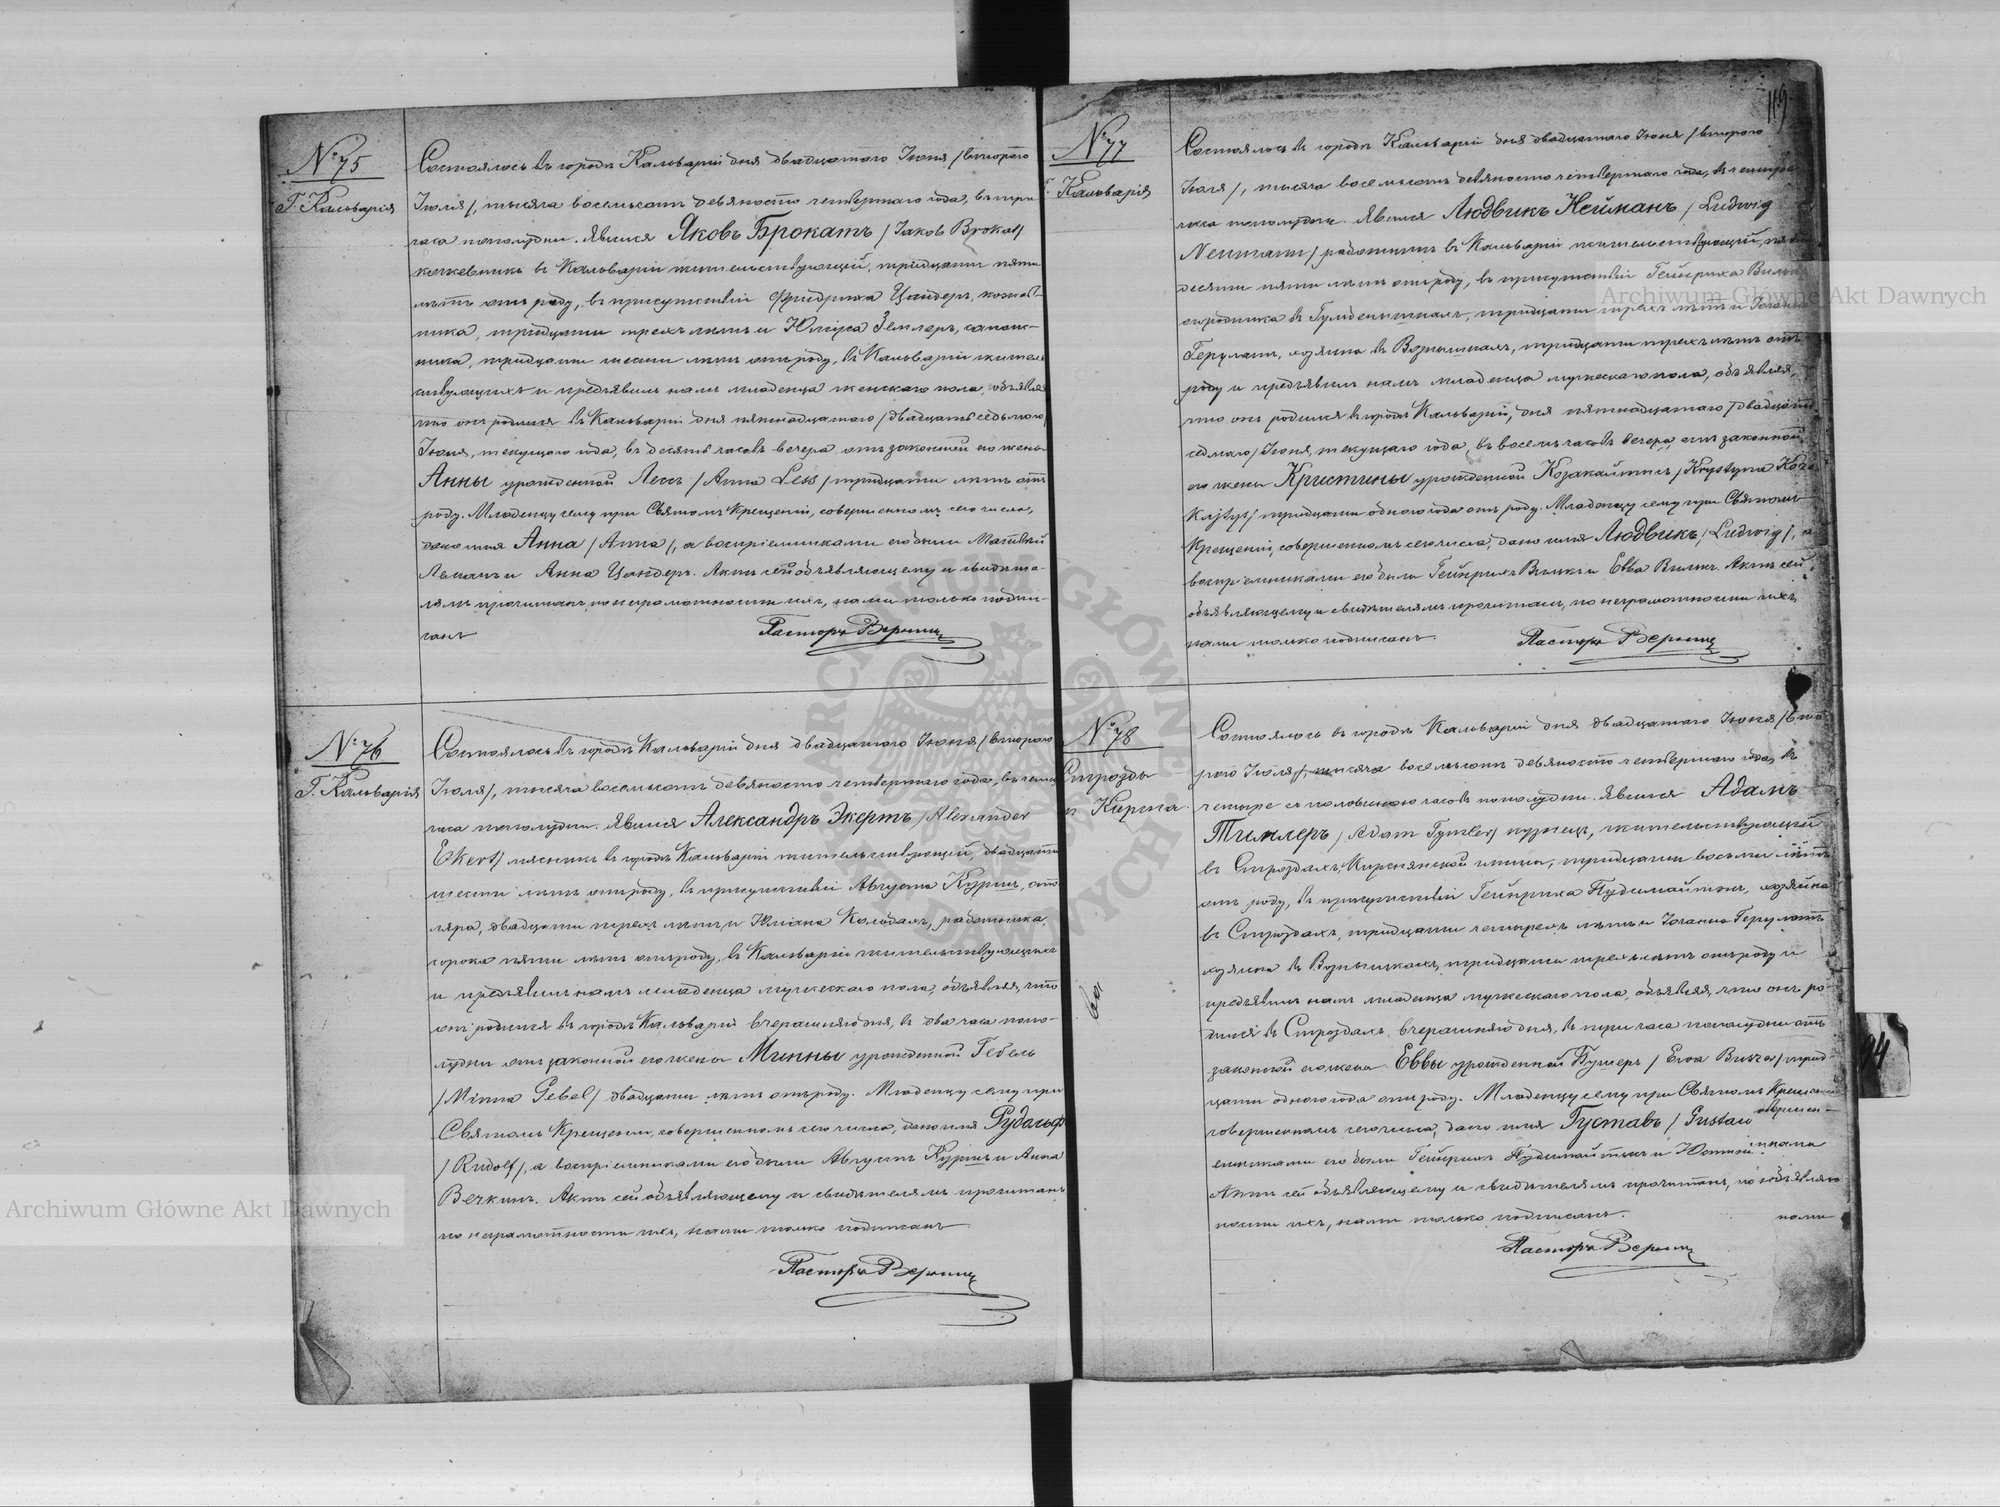 № 75
Г. Кальварія
Состоялось въ городѣ Кальваріи дня двадцатаго Іюня /втораго
Іюля/, тысяча восемьсотъ девяносто четвертаго года, въ три
часа пополудни. Явился Яковъ Брокатъ /Jakob Brokat/
кожевникъ въ Кальваріи жительствующій, тридцати пяти
лѣтъ отъ роду, въ присутствіи Фридриха Цандеръ, кожев-
ника, тридцати трехъ лѣтъ и Юліуса Земперъ, сапож-
ника, тридцати шести лѣтъ отъ роду, въ Кальваріи житель
ствующихъ и предъявилъ намъ младенца женскаго пола, объявляя
что онъ родился въ Кальваріи дня пятнадцатаго /двадцать седьмого/
Іюня, текущаго года, въ десять часовъ вечера отъ законной его жены
Анны урожденной Лессъ /Anna Less/ тридцати лѣтъ отъ
роду. Младенцу сему при Святомъ Крещеніи, совершенномъ сего числа,
дано имя Анна /Anna/, а воспріемниками его были Матвей
Леманъ и Анна Цандеръ. Актъ сей объявляющему и свидѣте-
лямъ прочитанъ, по неграмотности ихъ, нами только подпи-
санъ
Пасторъ
№ 76
Г. Кальварія
Состоялось въ городѣ Кальваріи дня двадцатаго Іюня /втораго
Іюля/, тысяча восемьсотъ девяносто четвертаго года, въ четыре
часа пополудни. Явился Александръ Экертъ /Alexander
Ekert/ мясникъ въ городѣ Кальваріи жительствующій, двадцати
шести лѣтъ отъ роду, въ присутствіи Августа Куршъ, сто
ляра, двадцати трехъ лѣтъ и Юліана работника,
сорока пяти лѣтъ отъ роду, въ Кальваріи жительствующихъ
и предъявилъ намъ младенца мужескаго пола, объявляя, что
онъ родился въ городѣ Кальваріи вчерашняго дня, въ два часа попо-
лудни отъ законной его жены Минны урожденной Гебель
/Minna Gebel/ двадцати лѣтъ отъ роду. Младенцу сему при
Святомъ Крещеніи, совершенномъ сего числа, дано имя Рудольф
/Rudolf/, а воспріемниками его были Августъ Куршъ и Анна
Вечкинъ. Актъ сей объявляющему и свидѣтелямъ прочитанъ
по неграмотности ихъ, нами только подписанъ
Пасторъ
119.
№ 77
Г. Кальварія
Состоялось въ городѣ Кальваріи дня двадцатаго Іюня /втораго
Іюля/, тысяча восемьсотъ девяносто четвертаго года, въ четыре
часа пополудни. Явился Людвикъ Нейманъ /Ludwig
Neumann/ работникъ въ Кальваріи жительствующій, пять
десяти пяти лѣтъ отъ роду, въ присутствіи Гейнриха
огородника въ тридцати трехъ лѣтъ и Іогана
Герулатъ, хозяина въ тридцати трехъ лѣтъ отъ
роду и предъявилъ намъ младенца мужескаго пола, объявляя,
что онъ родился въ городѣ Кальваріи, дня пятнадцатаго /двадцать
седьмаго/ Іюня, текущаго года, въ восемь часовъ вечера отъ законной
его жены Кристины урожденной Козакайтисъ /Krystyna Koza
kajtys/ тридцати одного года отъ роду. Младенцу сему при Святомъ
Крещеніи, совершенномъ сего числа, дано имя Людвикъ /Ludwig/, а
воспріемниками его были Гейнрихъ и Евва Актъ сей
объявляющему и свидѣтелямъ прочитанъ, по неграмотности ихъ
нами только подписанъ.
Пасторъ
№ 78
Строзды
Состоялось въ городѣ Кальваріи дня двадцатаго Іюня /вто
рого Іюля/, тысяча восемьсотъ девяносто четвертаго года, въ
четыре съ половиною часовъ пополудни. Явился Адамъ
Тимлеръ /Adam Tymler/ кузнецъ, жительствующій
въ Строздахъ, гмины, тридцати восьми лѣтъ
отъ роду, въ присутствіи Гейнриха хозяина
въ Строздахъ, тридцати четырехъ лѣтъ и Іогана Герулатъ
хозяина въ тридцати трехъ лѣтъ отъ роду и
предъявилъ намъ младенца мужескаго пола, объявляя, что онъ ро-
дился въ Строздахъ вчерашняго дня, въ три часа пополудни отъ
законной его жены Еввы урожденной Бушеръ /Ewa Buszer/ трид
цати одного года отъ роду. Младенцу сему при Святомъ Крещеніи
совершенномъ сего числа, дано имя Густавъ /Gustaw
емниками его были Гейнрихъ и
Актъ сей объявляющему и свидѣтелямъ прочитанъ, по
ности ихъ, нами только подписанъ.
нами
Пасторъ
94
Archiwum Główne Akt Dawnych
Archiwum Główne Akt Dawnych